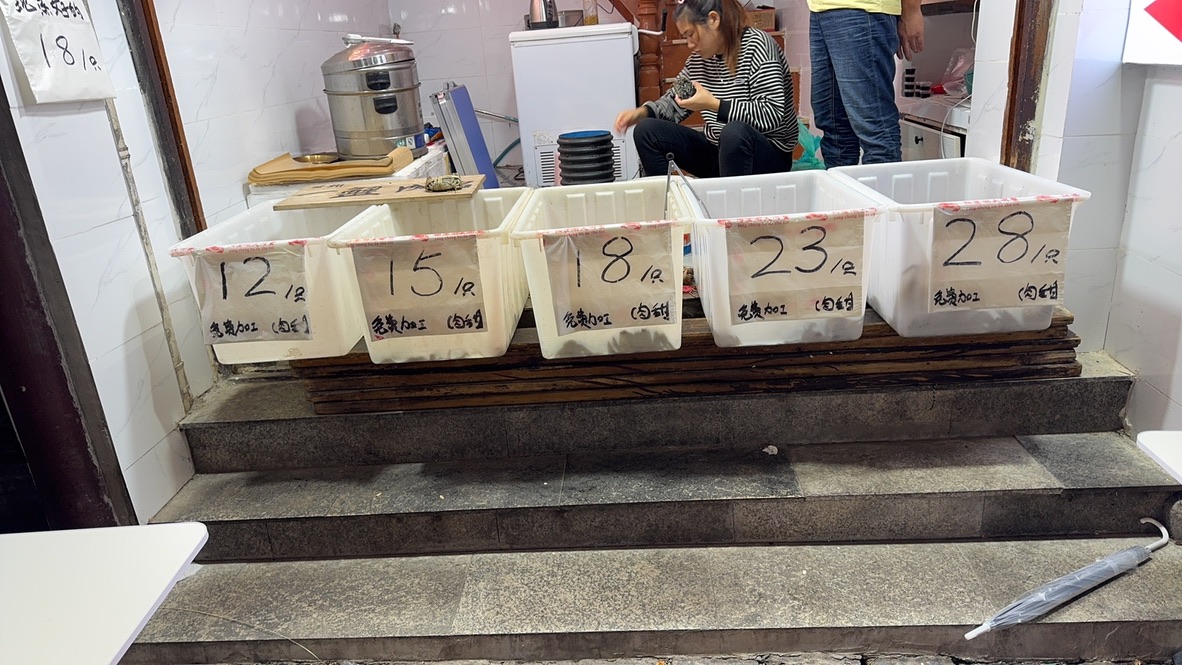 18/只
12/只
免费加工 (肉甜)
15/只
免费加工 (肉甜)
18/只
免费加工 (肉甜)
23/只
免费加工 (肉甜)
28/只
免费加工 (肉甜)